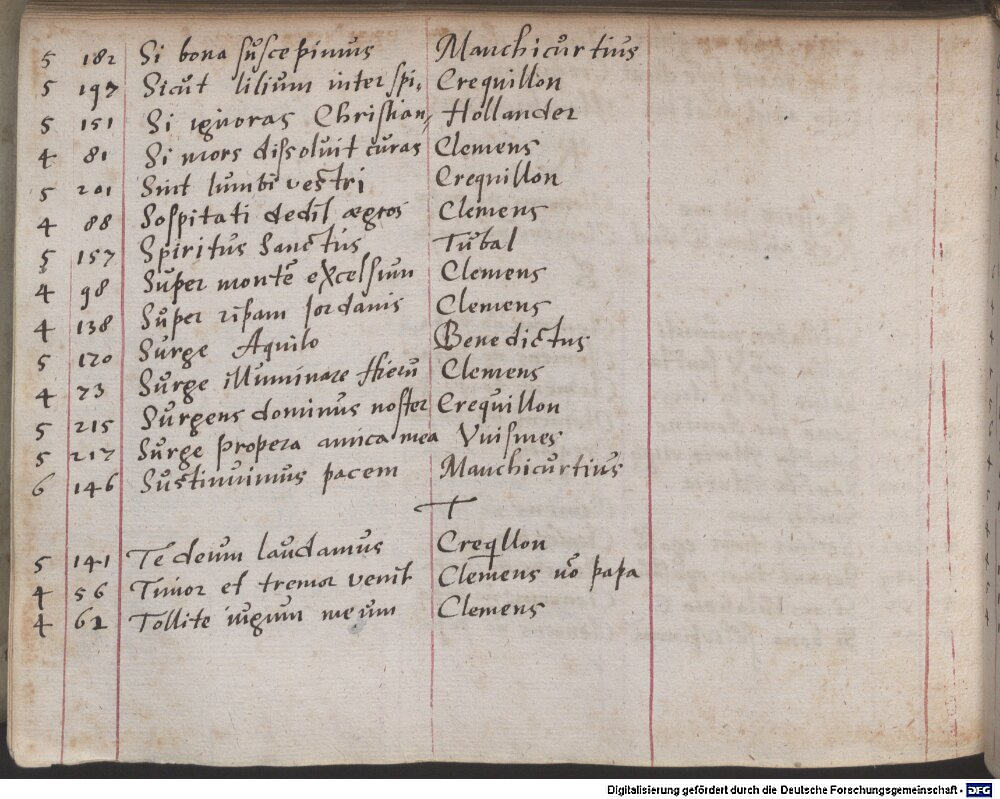 5 182 Si bona suscepimus Manchicurtius
5 197 Sicut lilium inter spi, Crequillon
5 151 Si ignoras Christian, Hollander
4 81 Si mors dissoluit curas Clemens
5 201 Sint lumbi vestri Crequillon
4 88 Sospitati dedit aegros Clemens
5 157 Spiritus Sanctus Tubal
4 98 Super montē excelsum Clemens
4 138 Super ripam Jordanis Clemens
5 120 Surge Aquilo Benedictus
4 73 Surge illuminare Hieru Clemens
5 215 Surgens dominus noster Crequillon
5 217 Surge propera amica mea Vuismes
6 146 Sustinuimus pacem Manchicurtius
T
5 141 Te deum laudamus Creqllon
4 56 Timor et tremor venit Clemens nō papa
4 61 Tollite iugum meum Clemens
Digitalisierung gefördert durch die Deutsche Forschungsgemeinschaft - DFG